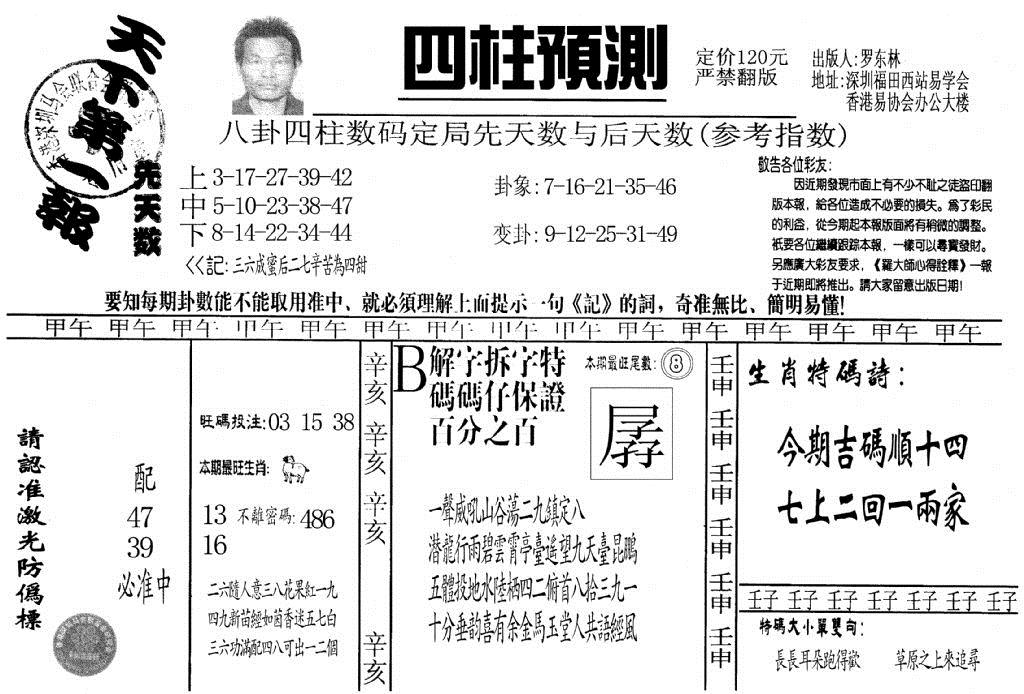 天下第一報
四柱預測
定价120元
严禁翻版
出版人:罗东林
地址:深圳福田西站易学会
香港易协会办公大楼
八卦四柱数码定局先天数与后天数(参考指数)
先天数
上3-17-27-39-42
中5-10-23-38-47
下8-14-22-34-44
<<記:三六成蜜后二七辛苦為四甜
卦象:7-16-21-35-46
变卦:9-12-25-31-49
敬告各位彩友:
因近期發現市面上有不少不恥之徒盜印翻
版本報，給各位造成不必要的損失。爲了彩民
的利益，從今期起本報版面將有稍微的調整。
衹要各位繼續跟踪本報，一樣可以尋寶發財。
另應廣大彩友要求，《羅大師心得詮釋》一報
于近期即將推出。請大家留意出版日期!
要知每期卦數能不能取用准中、就必須理解上面提示一句《記》的詞，奇准無比、簡明易懂!
甲午 甲午 甲午 甲午 甲午 甲午 甲午 甲午 甲午 甲午 甲午 甲午 甲午 甲午 甲午
請認准激光防僞標
配
47
39
必准中
旺碼投注:03 15 38
本期最旺生肖:
13 不離密碼:486
16
二六隨人意三八花果紅一九
四九新苗經如茵香迷五七白
三六功滿配四八可出一二個
辛亥 辛亥 辛亥 辛亥
B解字拆字特
碼碼仔保證
百分之百
本期最旺尾數:8
一聲威吼山谷蕩二九鎮定八
潜龍行雨碧雲霄亭臺遙望九天臺昆鵬
五體投地水陸栖四二俯首八拾三九一
十分垂韵喜有余金馬玉堂人共語經風
壬申 壬申 壬申 壬申 壬申 壬申
生肖特碼詩:
今期吉碼順十四
七上二回一兩家
壬子 壬子 壬子 壬子 壬子 壬子 壬子
特碼大小單雙句:
長長耳朵跑得歡 草原之上來追尋